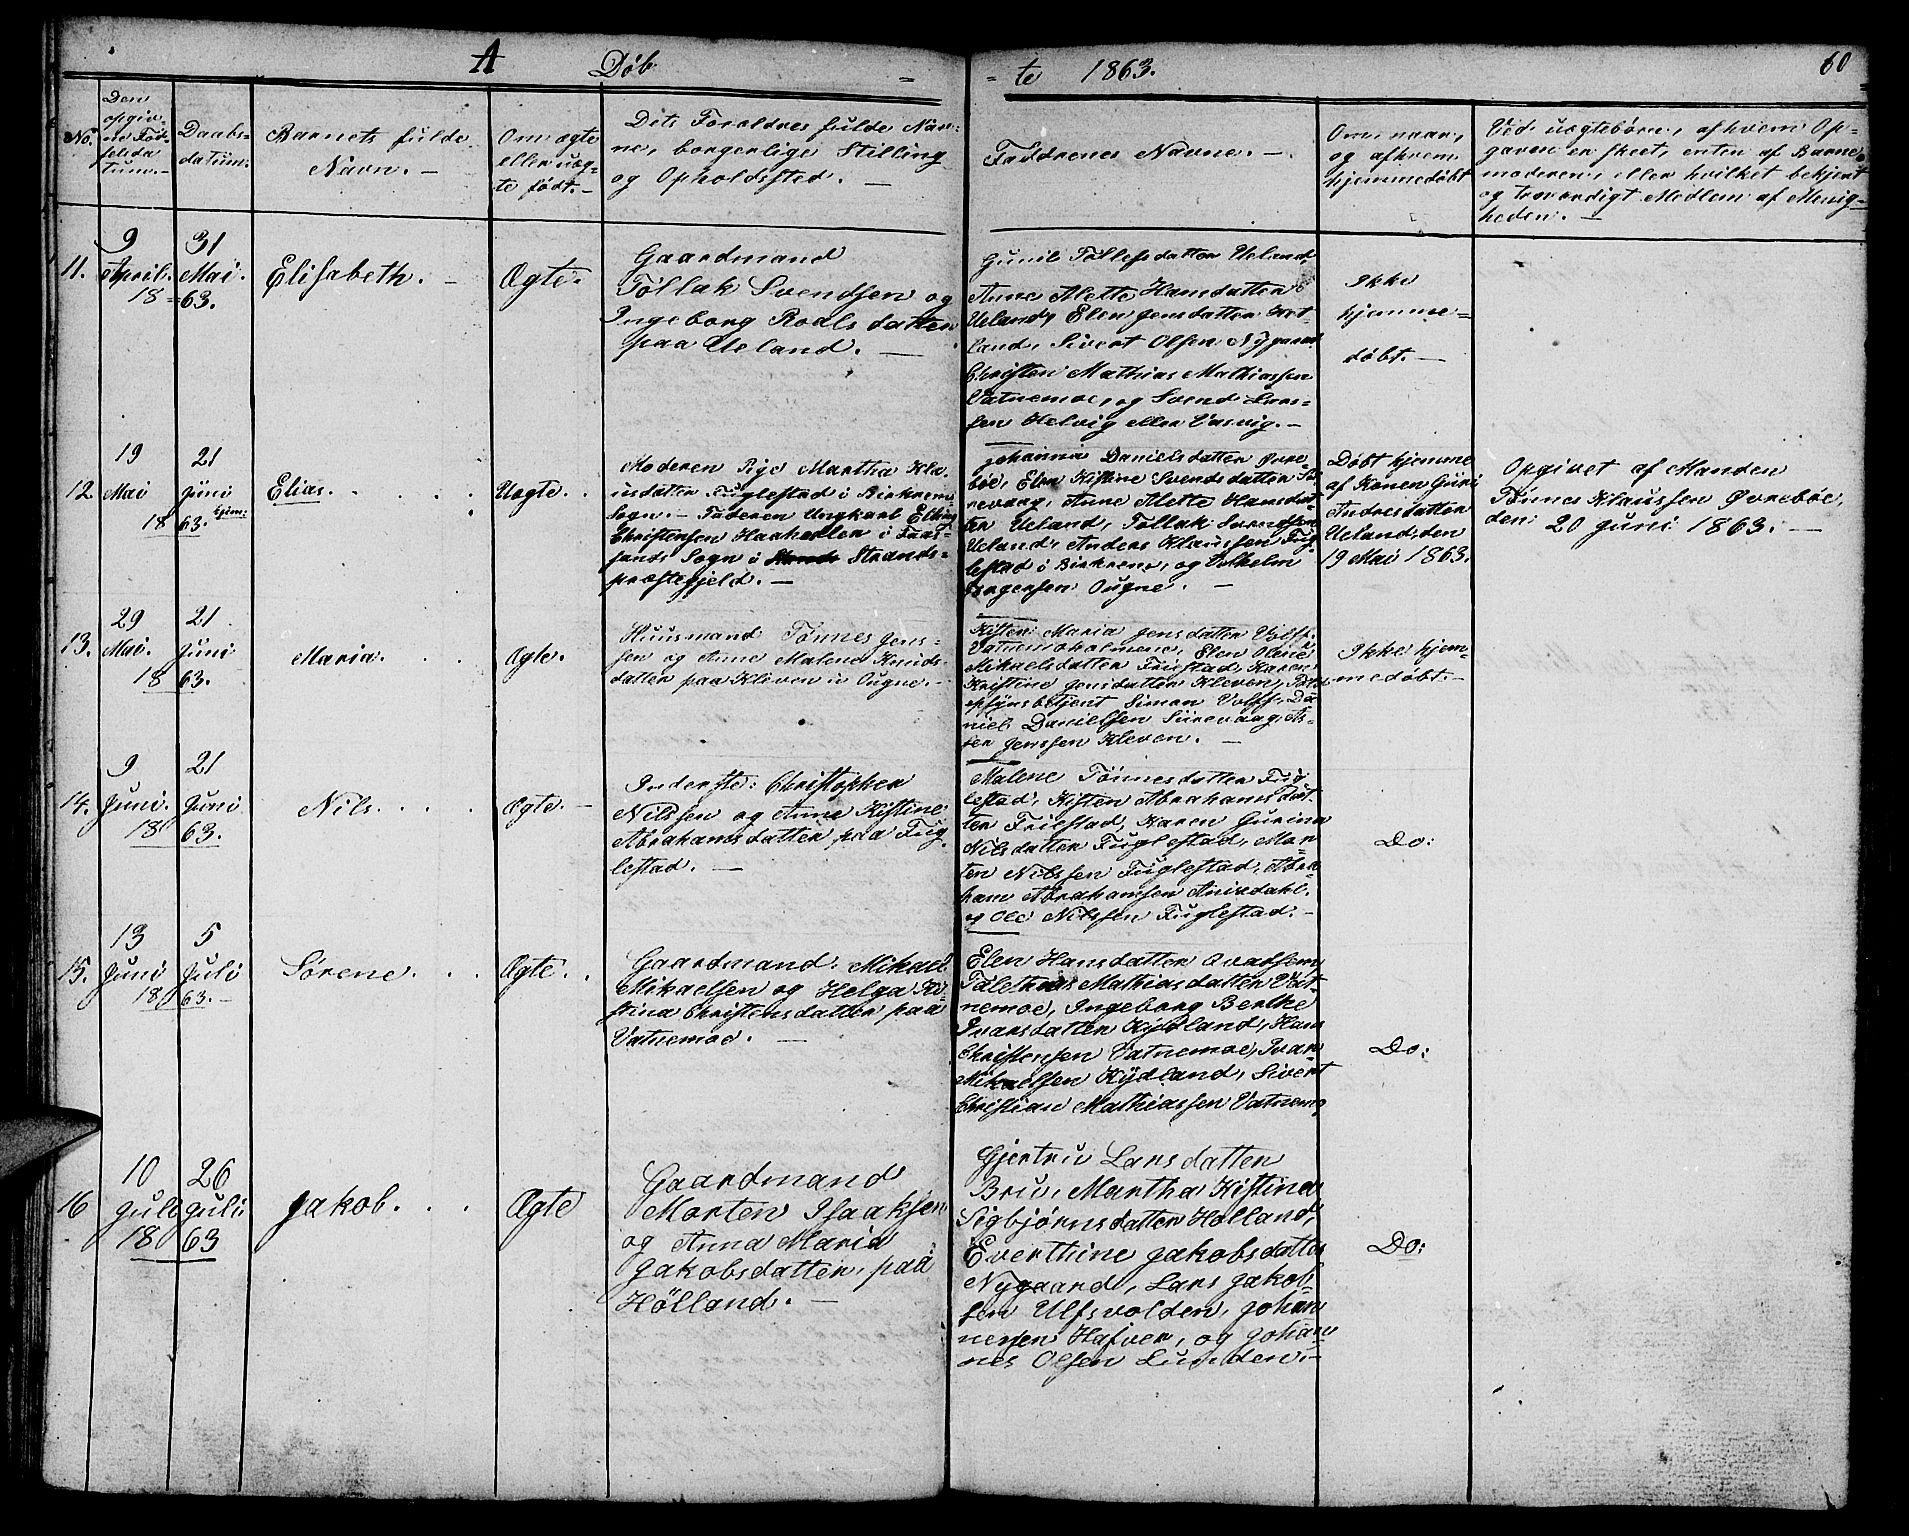 A Døb - - te 1863. 60
No.
Den
opgiv-
ne Fød-
selsda
tum.-
Daabs-
datum.
Barnets fulde
Navn. -
Om ægte
eller uæg-
te født.-
Dets Forældres fulde Nav-
ne, borgerlige Stilling
og Opholdssted. -
Faddrenes Navne. -
Om, naar,
og af hvem
hjemmedøbt
Ved uægtebørn, af hvem Op-
gaven er skeet, enten af Barne-
moderen, eller hvilket bekjent
og troværdigt Medlem af Menig-
heden. -
11.
9
April.
18
31
Mai.
63.
Elisabeth. -
Ægte.
Gaardmand
Tollak Svendsen og
Ingeborg Roalsdatter
paa Ueland. -
Gunil Tollefsdatter Ueland,
Anne Mette Hansdatter
Ueland, Elen Jensdatter
land, Sivert Olsen Nygaard
Christen Mathias Mathiassen
Vatnemoe, og Svend Lars-
sen Helvig eller Vasvig. -
Ikke
hjemme-
døbt. -
12.
19
Mai
18
21
Juni
63. hjem:
Elias. . . . .
Uægte. .
Moderen Pige Martha Kla-
usdatter Fuglestad i Birkrem
Sogn. - Faderen Ungkarl Elling
Christensen Haahellen i Fros-
sands Sogn i Strands-
præstegjeld. -
Johanna Danielsdatter Øvre-
bøe, Elen Kistine Svendsdatter
nevarg, Anne Mette Hansdat-
ter Ueland, Tollak Svendsen
Ueland, Anders Klaussen Fug-
lestad i Birkrem, og Vilhelm
Ougne. -
Døbt hjemme
af Konen Guri
Andresdatter
Ueland, den
19 Mai 1863.
Opgivet af Manden
Tønnes Klaussen Øvrebøe,
den 20 Juni 1863. -
13.
29
Mai.
18
21
Juni
63.
Maria. . . .
Ægte.
Huusmand Tønnes Jens-
sen og Anne Malene Knuds-
datter paa Kleven i Ougne. -
Kisten Maria Jensdatter Volff.
Vatnemoholmene, Elen Oline
Mikaelsdatter Friestad, Karen
Kristine Jensdatter Kleven,
opsynsbetjent Simon Volff, Da
niel Danielsen Siirevaag, As-
ser Jenssen Kleven. -
Ikke hjem-
medøbt. -
14.
9
Juni.
18
21
Juni
63.
Nils. . . .
Ægte. -
Inderste: Christopher
Nilssen og Anne Kistine
Abrahamsdatter paa Fug-
lestad. -
Malene Tønnesdatter Fug
lestad, Kisten Abrahamsdat-
ter Friestad, Karen Gurina
Nilsdatter Fuglestad, Mor-
ten Nilssen Fuglestad, Abra
ham Abrahamsen Anisdahl.
og Ole Nilssen Fuglestad. -
Do:
15.
13
Juni
18
5
Juli
63. -
Sørene. . .
Ægte. .
Gaardmand. Mikael
Mikaelsen og Helga Ki-
stina Christensdatter paa
Vatnemoe. -
Elen Hansdatter
Mathiasdatter Vat-
nemoe, Ingeborg Berthe
Ivarsdatter Kydland, Hans
Christensen Vatnemoe, Ivar
Mikaelsen Kydland, Sivert
Christian Mathiassen Vatnemo.
Do:
16
10
Juli
18
26
Juli
63
Jakob. . .
Ægte
Gaardmand
Morten Isaaksen
og Anna Maria
Jakobsdatter, paa
Hölland. -
Gjertru Larsdatter
Bru, Martha Kistina
Sigbjørnsdatter Holland,
Everthine Jakobsdatter
Nygaard, Lars Jakob-
sen Ulfsvolden, Johan
nessen Hafver, og Johan-
nes Olsen Lunden. -
Do: